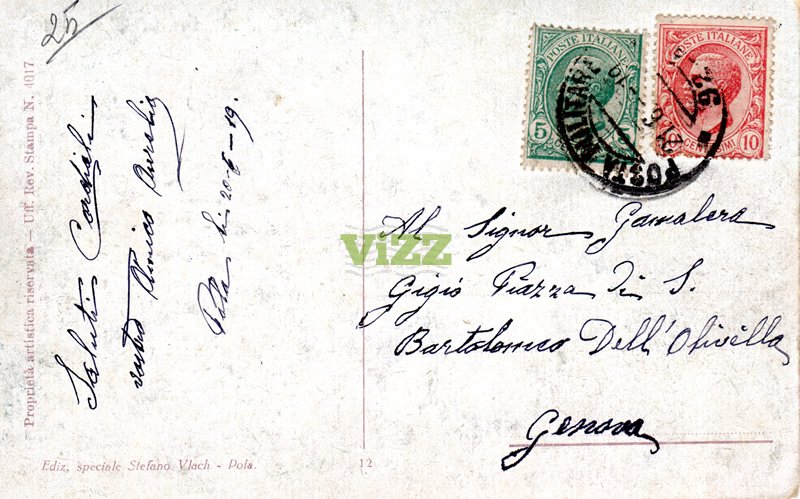 25
Proprietà artistica riservata — Uff. Rev. Stampa N. 4017
Saluti Cordiali
vostro Amico Aurelio
Pola li 20-6-19.
Ediz. speciale Stefano Vlach - Pola.
12
POSTE ITALIANE
5
POSTE ITALIANE
10
POSTA MILITARE
26
ViZZ
Al Signor Gamalera
Gigio Piazza Di S.
Bartolomeo Dell' Olivella
Genova